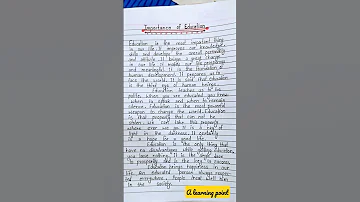 Importance of Education
Education is the most important thing
in our life. It improves our knowledge,
skills and develops the overall personality
and attitude. It brings a great change
in our life. It makes our life prosperous
and meaningful. It is the foundation of
human development. It prepares us to
face the world. It is said that education
is the third eye of human beings.
Education teaches us to be
polite. When you are educated you know
when to speak and when to remain
silence. Education is the most powerful
weapon to change the world. Education
is that property that can not be
stolen. We can take this property
where ever we go. It is a ray of
light in the darkness. It certainly
is a hope for a good life.
Education is "the only thing that
have no disadvantages while getting education
you lose nothing." It is the single door
to prosperity and is the key to success.
Education brings happiness in our
life. An educated person always respected
everywhere. People treat well him
in the society.
A learning point